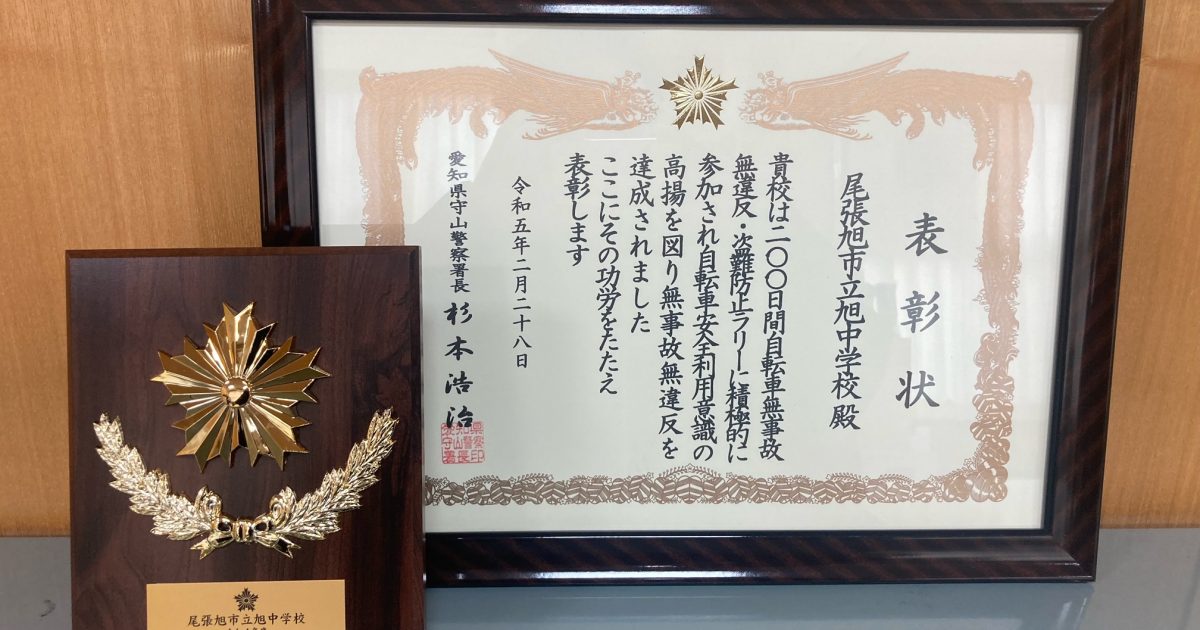 表彰状
尾張旭市立旭中学校殿
貴校は二〇〇日間自転車無事故
無違反・盗難防止ラリーに積極的に
参加され自転車安全利用意識の
高揚を図り無事故無違反を
達成されました
ここにその功労をたたえ
表彰します
令和五年二月二十八日
愛知県守山警察署長 杉本浩治
尾張旭市立旭中学校